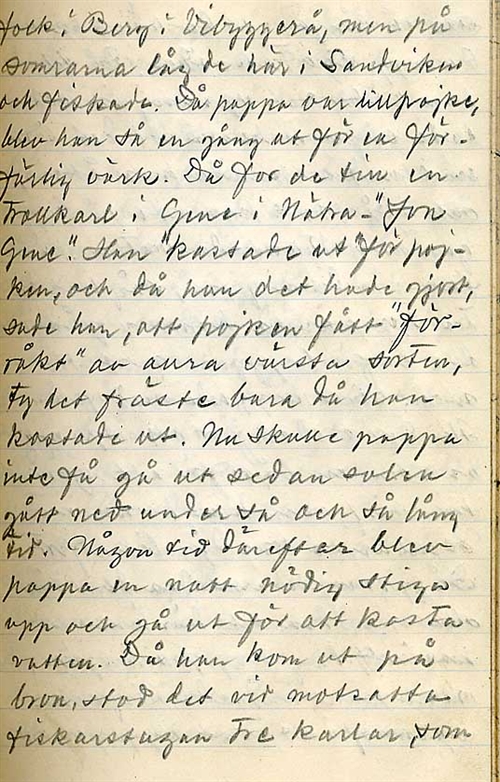 folk i Berg i Vibyggerå, men på
somrarna låg de här i Sandviken
och fiskade. Då pappa var liten pojke,
blev han så en gång ut för en för-
färlig värk. Då for de till en
Trollkarl i Gene i Nätra - "Jon
Gene". Han "kastade ut" för poj-
ken, och då han det hade gjort,
sade han, att pojken fått "för-
råkt" av allra värsta sorten,
ty det fräste bara då han
kastade ut. Nu skulle pappa
inte få gå ut sedan solen
gått ned under så och så lång
tid. Någon tid därefter blev
pappa en natt nödig stiga
upp och gå ut för att kasta
vatten. Då han kom ut på
bron, stod det vid motsatta
fiskarstugan tre karlar, som